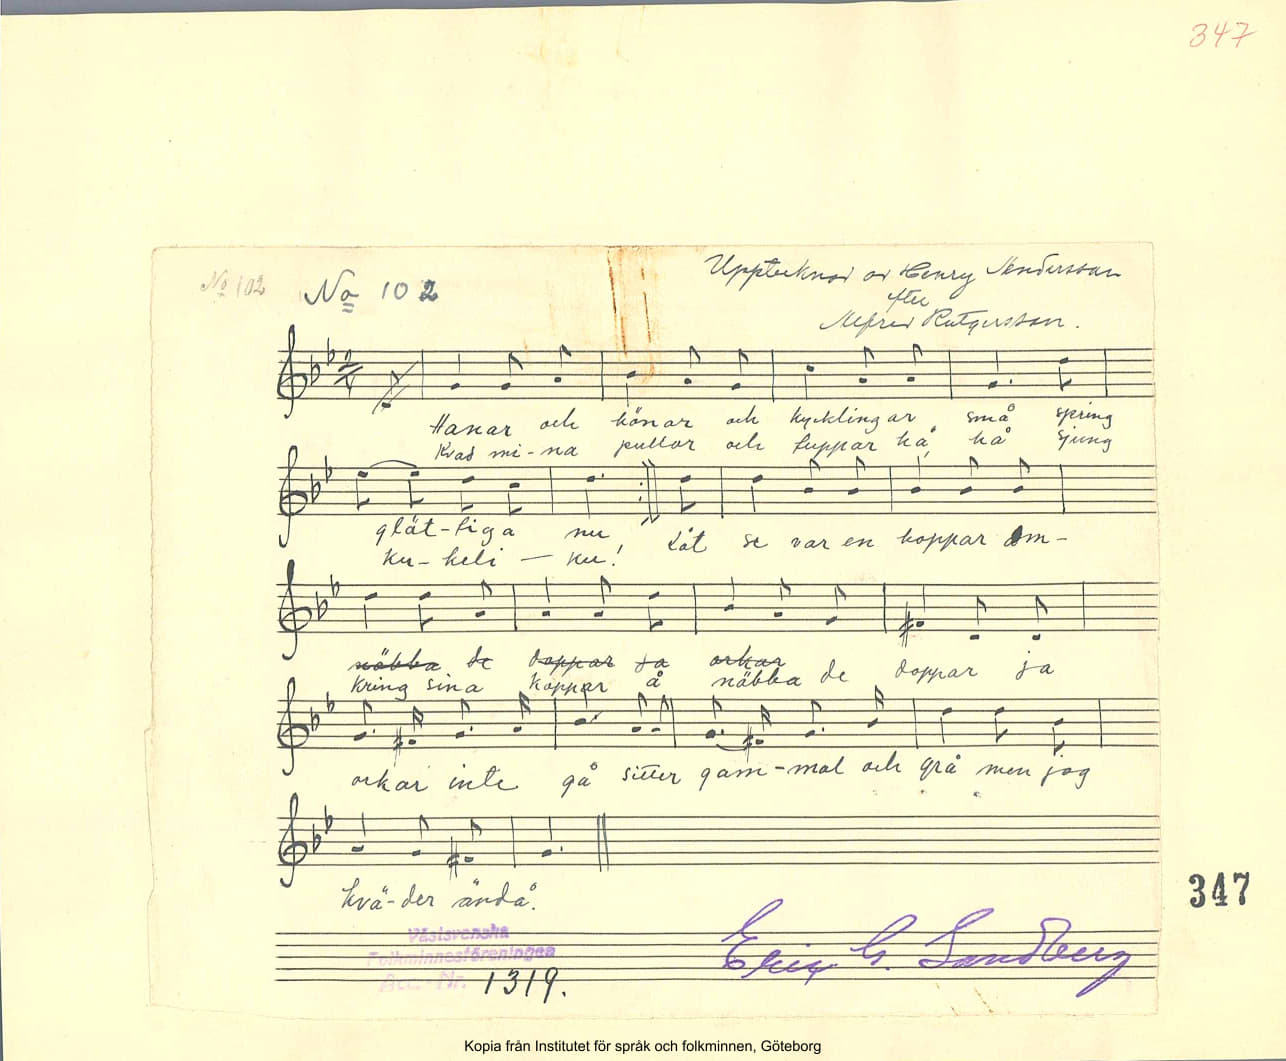 347
No 102
No 102
Upptecknad av Henry Andersson
efter
Alfred Rutgersson.
2
4
Hanar och hönar och kycklingar små spring
Kvad mi-na pullor och tuppar hå hå sjung
glät-tiga nu Låt se var en hoppar om-
ku-keli — ku!
näbba de doppar ja orkar
kring sina koppar å näbba de doppar ja
orkar inte gå sitter gam-mal och grå men jag
kvä-der ändå.
347
Västsvenska
Folkminnesföreningen
Acc.-Nr. 1319.
Eric G. Sandberg
Kopia från Institutet för språk och folkminnen, Göteborg